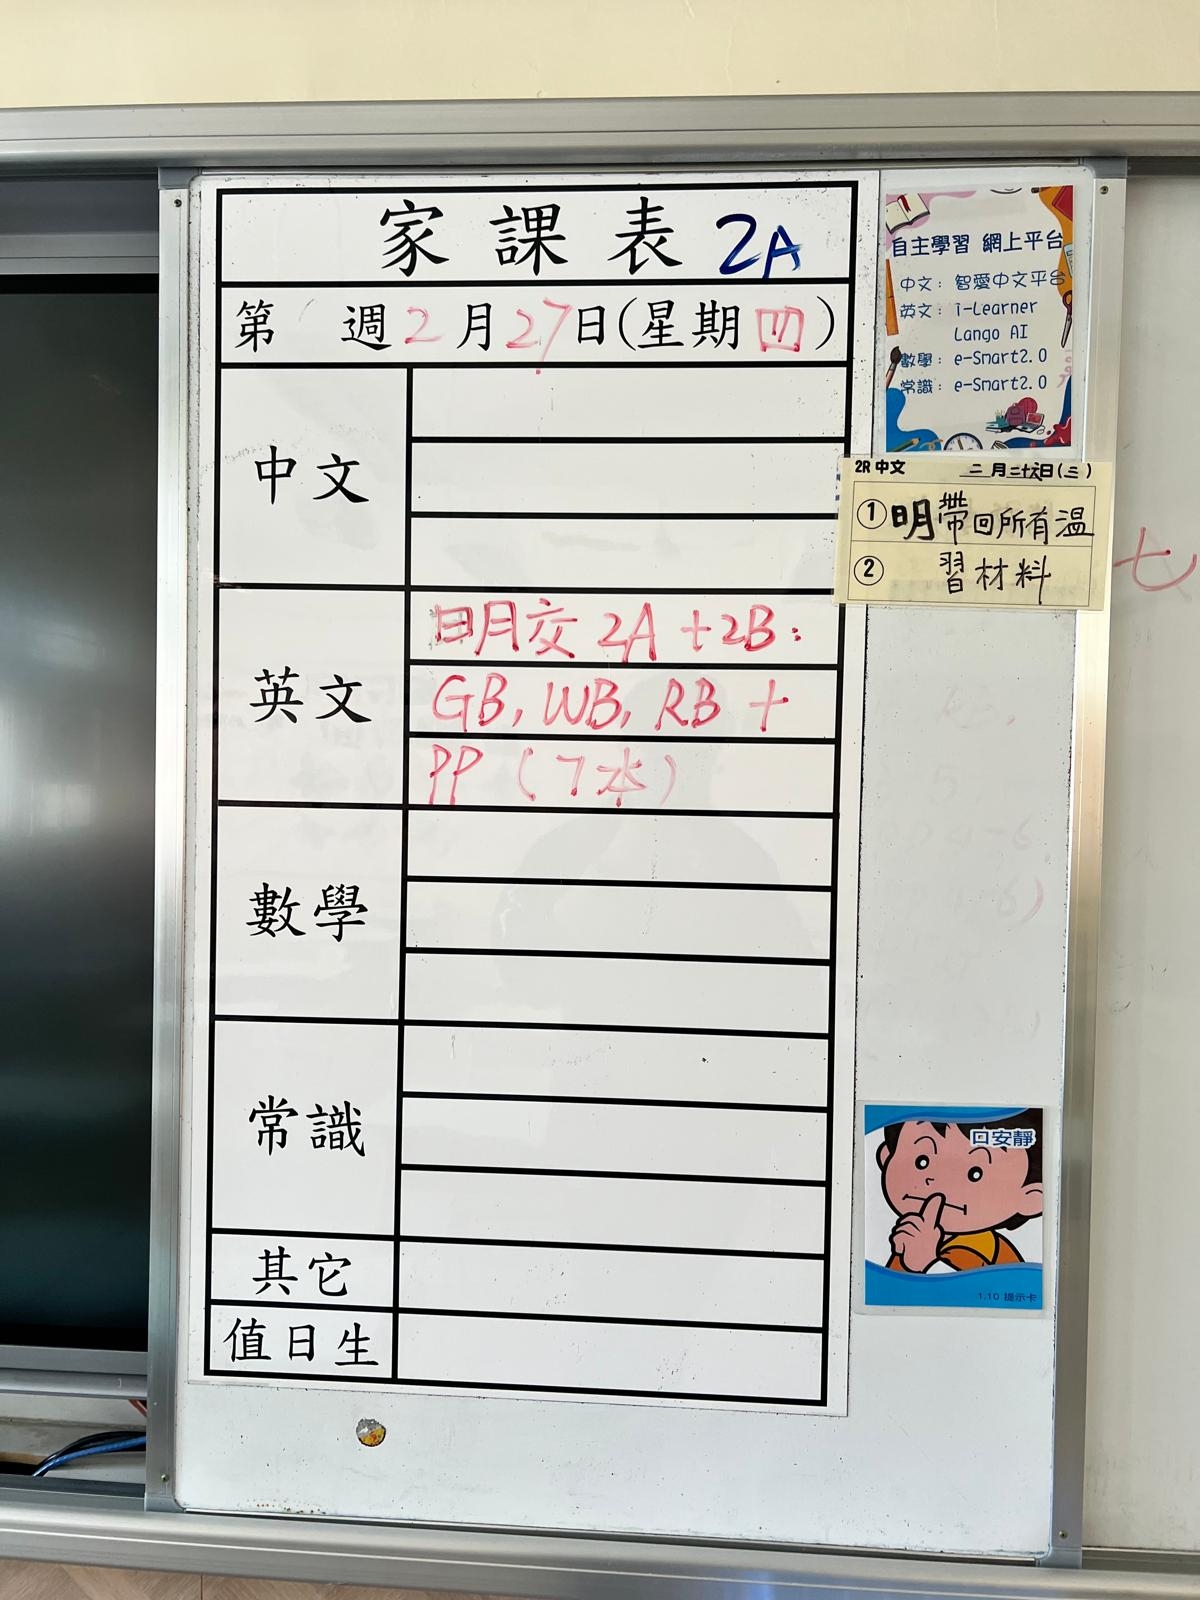 家課表 2A
第 週 2月27日(星期四)
中文
英文
明交 2A + 2B:
GB, WB, RB +
PP (7本)
數學
常識
其它
值日生
自主學習 網上平台
中文: 智愛中文平台
英文: i-Learner
Lango AI
數學: e-Smart2.0
常識: e-Smart2.0
2R 中文 二月二十六日(三)
① 明帶回所有溫
② 習材料
七
口安靜
1.10 提示卡